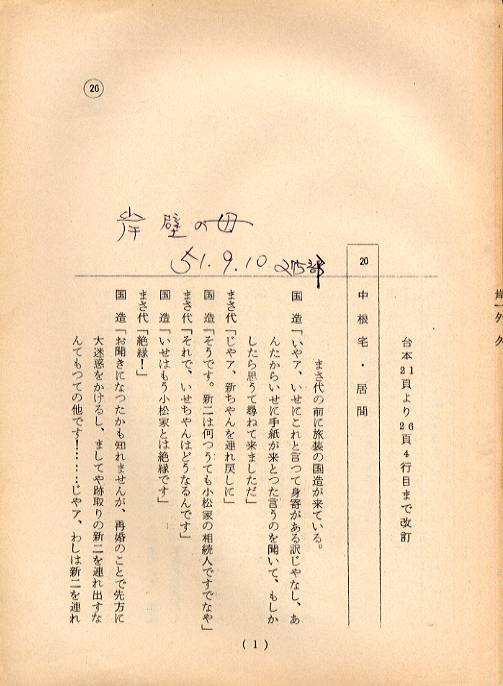 ⑳
岸壁の母
51.9.10 275部
台本21頁より26頁4行目まで改訂
20 中根宅・居間
まさ代の前に旅装の国造が来ている。
国造「いやア、いせにこれと言つて身寄がある訳じやなし、あ
んたからいせに手紙が来とつた言うのを聞いて、もしか
したら思うて尋ねて来ましただ」
まさ代「じやア、新ちやんを連れ戻しに」
国造「そうです。新二は何つうても小松家の相続人ですでなや」
まさ代「それで、いせちやんはどうなるんです」
国造「いせはもう小松家とは絶縁です」
まさ代「絶縁!」
国造「お聞きになつたかも知れませんが、再婚のことで先方に
大迷惑をかけるし、ましてや跡取りの新二を連れ出すな
んてもつての他です!……じやア、わしは新二を連れ
(1)